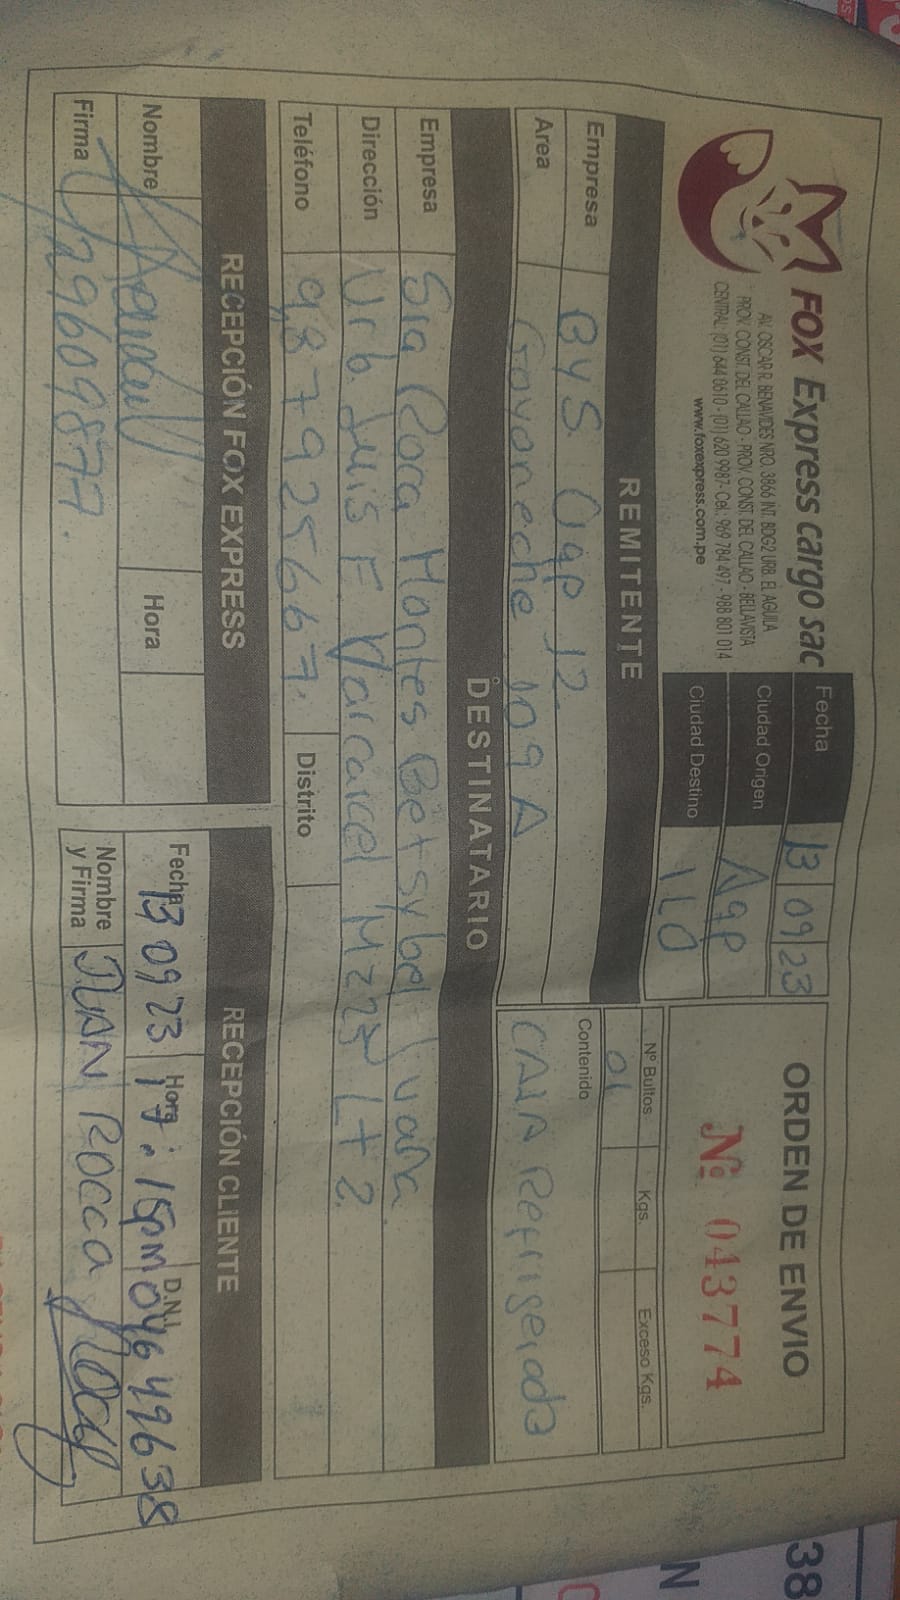 FOX Express cargo sac
AV. OSCAR R. BENAVIDES NRO. 3866 INT. BDG2 URB. EL AGUILA
PROV. CONST. DEL CALLAO - PROV. CONST. DEL CALLAO - BELLAVISTA
CENTRAL: (01) 644 0610 - (01) 620 9987- Cel.: 969 784 497 - 988 801 014
www.foxexpress.com.pe
Fecha 13 09 23
Ciudad Origen Aqp
Ciudad Destino ILO
ORDEN DE ENVIO
Nº 043774
REMITENTE
Empresa BYS Aqp 12.
Area Goyoneche 109 A
Nº Bultos Kgs. Exceso Kgs.
01
Contenido
CAJA Refrigerada
DESTINATARIO
Empresa Sra Roca Montes Betsybel Ivana.
Dirección Urb Luis E. Varcarcel Mz 23 Lt 2.
Teléfono 987925667. Distrito
RECEPCIÓN FOX EXPRESS
Nombre Hora
Firma 29609877.
RECEPCIÓN CLIENTE
Fecha 13 09 23 Hora 17:15pm D.N.I. 04649638
Nombre y Firma JUAN ROCCA
38
N